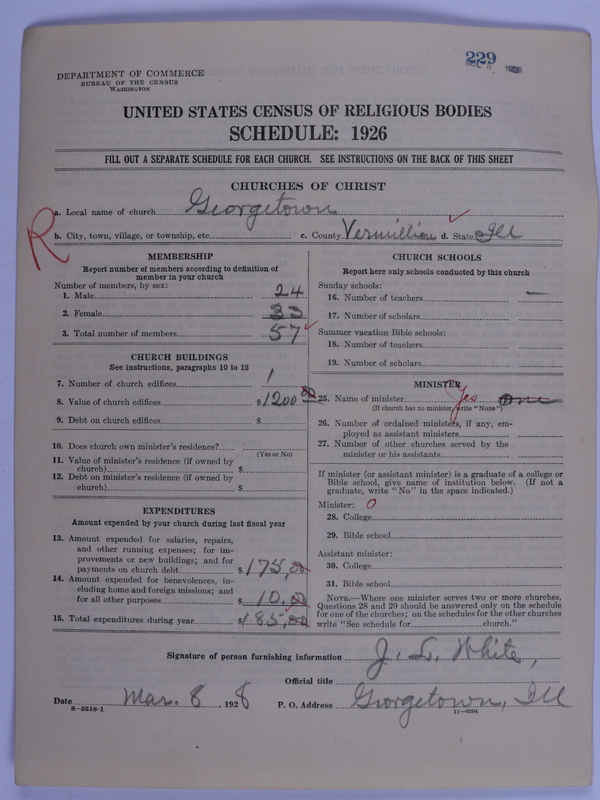 229
DEPARTMENT OF COMMERCE
BUREAU OF THE CENSUS
WASHINGTON
UNITED STATES CENSUS OF RELIGIOUS BODIES
SCHEDULE: 1926
FILL OUT A SEPARATE SCHEDULE FOR EACH CHURCH. SEE INSTRUCTIONS ON THE BACK OF THIS SHEET
CHURCHES OF CHRIST
R
a. Local name of church Georgetown
b. City, town, village, or township, etc. c. County Vermillion d. State Ill
MEMBERSHIP
Report number of members according to definition of
member in your church
Number of members, by sex:
1. Male 24
2. Female 33
3. Total number of members 57
CHURCH BUILDINGS
See instructions, paragraphs 10 to 12
7. Number of church edifices 1
8. Value of church edifices $1200.00
9. Debt on church edifices $
10. Does church own minister's residence?
(Yes or No)
11. Value of minister's residence (if owned by
church) $
12. Debt on minister's residence (if owned by
church) $
EXPENDITURES
Amount expended by your church during last fiscal year
13. Amount expended for salaries, repairs,
and other running expenses; for im-
provements or new buildings; and for
payments on church debt $175.00
14. Amount expended for benevolences, in-
cluding home and foreign missions; and
for all other purposes $10.00
15. Total expenditures during year $185.00
CHURCH SCHOOLS
Report here only schools conducted by this church
Sunday schools:
16. Number of teachers —
17. Number of scholars
Summer vacation Bible schools:
18. Number of teachers
19. Number of scholars
MINISTER
25. Name of minister Yes One
(If church has no minister, write "None")
26. Number of ordained ministers, if any, em-
ployed as assistant ministers
27. Number of other churches served by the
minister or his assistants
If minister (or assistant minister) is a graduate of a college or
Bible school, give name of institution below. (If not a
graduate, write "No" in the space indicated.)
Minister: 0
28. College
29. Bible school
Assistant minister:
30. College
31. Bible school
NOTE.—Where one minister serves two or more churches,
Questions 28 and 29 should be answered only on the schedule
for one of the churches; on the schedules for the other churches
write "See schedule for church."
Signature of person furnishing information J. L. White,
Official title
Date Mar. 8, 1928 P. O. Address Georgetown, Ill
8—5518-1 11—9204